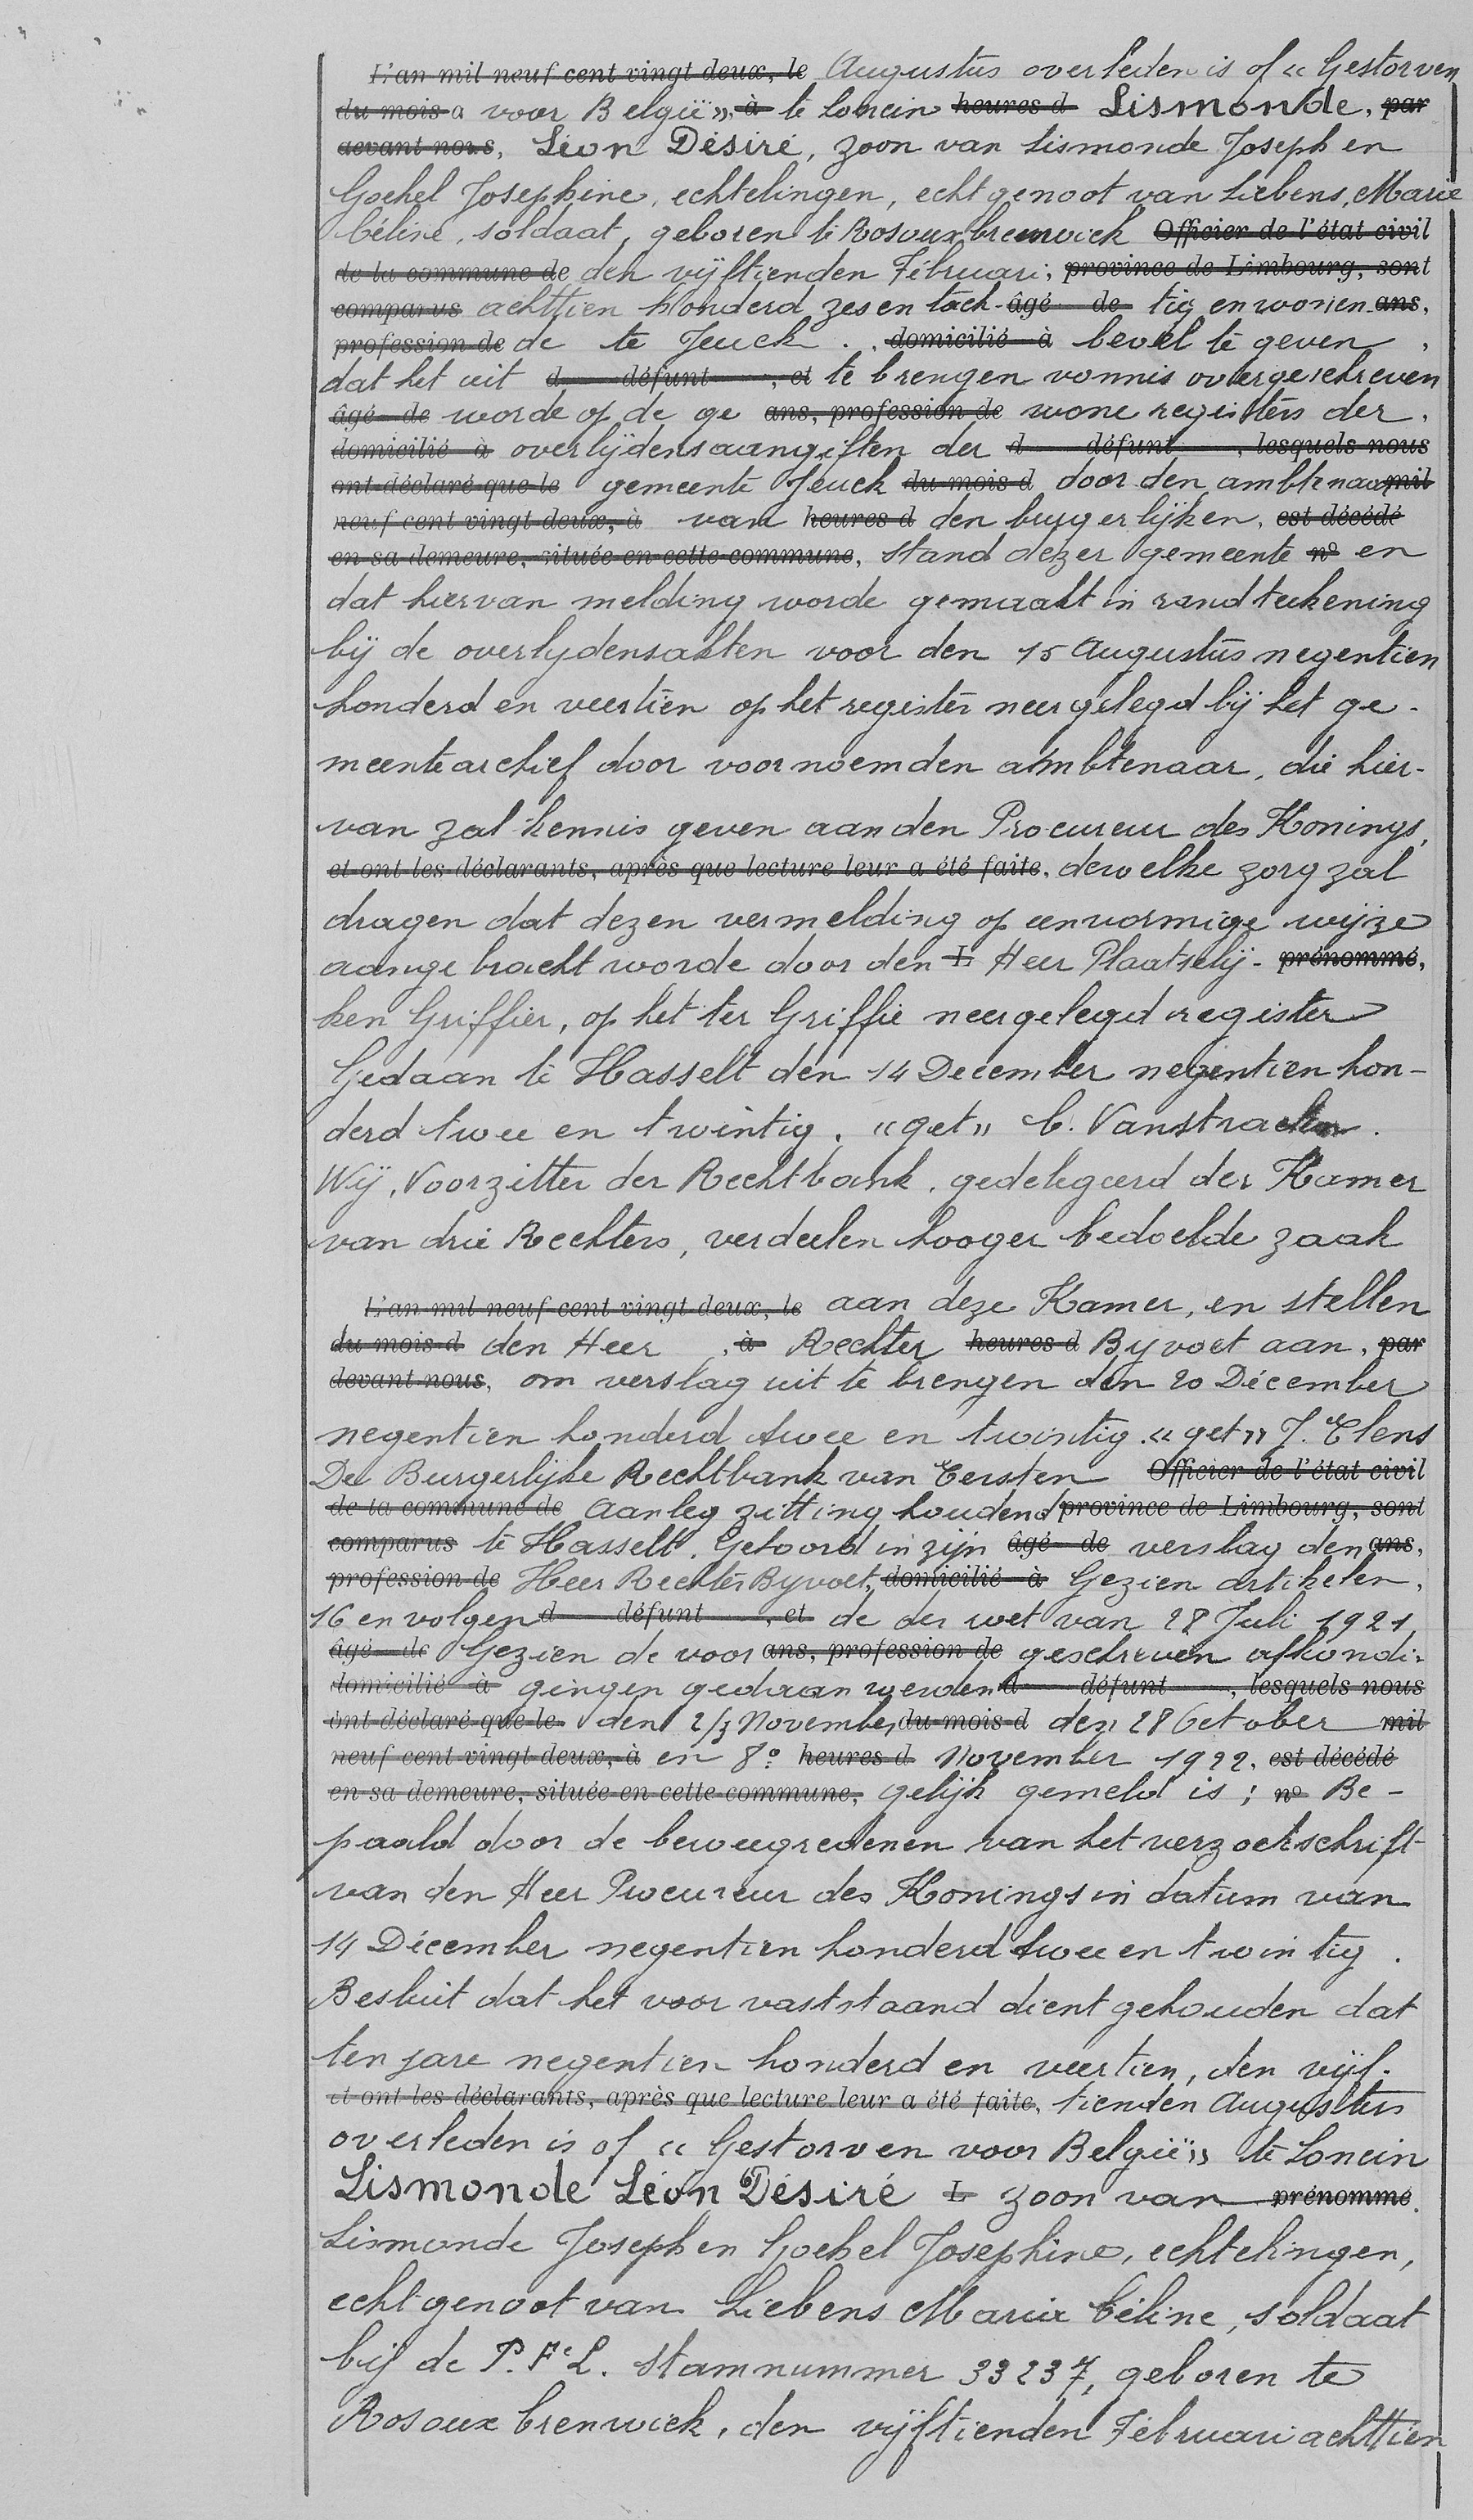 L'an mil neuf cent vingt deux, le Augustus overleden is of « Gestorven
du mois a voor België », à te Loncin heures d Lismonde, par
devant nous, Léon Désiré, zoon van Lismonde Joseph en
Goehel Josephine, echtelingen, echtgenoot van Liebens, Marie
Céline, soldaat, geboren te Rosouxcrenwick Officier de l'état civil
de la commune de den vijftienden Februari, province de Limbourg, sont
comparus achttien honderd zes en tach- âgé de tig en wonen ans,
profession de de te Jeuck . . domicilié à bevel te geven ,
dat het uit d défunt , et te brengen vonnis overgeschreven
âgé de worde op de ge ans, profession de wone registers der ,
domicilié à overlijdensaangiften der d défunt , lesquels nous
ont déclaré que le gemeente Jeuck du mois d door den ambtenaar mil
neuf cent vingt deux, à van heures d den burgerlijken, est décédé
en sa demeure, située en cette commune, stand dezer gemeente no en
dat hiervan melding worde gemaakt in randteekening
bij de overlydensakten voor den 15 Augustus negentien
honderd en veertien op het register neergelegd bij het ge-
meentearchief door voornoemden ambtenaar, die hier-
van zal kennis geven aan den Procureur des Konings,
et ont les déclarants, après que lecture leur a été faite, dewelke zorg zal
dragen dat dezen vermelding op eenvormige wijze
aangebracht worde door den L Heer Plaatselij- prénommé,
ken Griffier, op het ter Griffie neergelegd register
Gedaan te Hasselt den 14 December negentien hon-
derd twee en twintig. « get » C. Vanstraelen.
Wij, Voorzitter der Rechtbank, gedelegeerd der Kamer
van drie Rechters, verdeelen hooger bedoelde zaak
L'an mil neuf cent vingt deux, le aan deze Kamer, en stellen
du mois d den Heer , à Rechter heures d Byvoet aan, par
devant nous, om verslag uit te brengen den 20 Décember
negentien honderd twee en twintig. « get » J. Elens
De Burgerlijke Rechtbank van Eersten Officier de l'état civil
de la commune de Aanleg zitting houdend province de Limbourg, sont
comparus te Hasselt. Gehoord in zijn âgé de verslag den ans,
profession de Heer Rechter Byvoet, domicilié à Gezien artikelen,
16 en volgen d défunt , et de der wet van 28 Juli 1921,
âgé de Gezien de voor ans, profession de geschreven afkondi-
domicilié à gingen gedaan werden d défunt , lesquels nous
ont déclaré que le den 2/3 November du mois d den 28 October mil
neuf cent vingt deux, à en 8° heures d November 1922, est décédé
en sa demeure, située en cette commune, gelijk gemeld is ; no Be-
paald door de beweegredenen van het verzoekschrift
van den Heer Procureur des Konings in datum van
14 Décember negentien honderd twee en twintig .
Besluit dat het voor vaststaand dient gehouden dat
ten jare negentien honderd en veertien, den vijf-
et ont les déclarants, après que lecture leur a été faite, tienden Augustus
overleden is of « Gestorven voor België » te Loncin
Lismonde Léon Désiré L zoon van prénommé.
Lismonde Joseph en Goehel Josephine, echtelingen,
echtgenoot van Liebens Marie Céline, soldaat
bij de P. F. L. stamnummer 33237, geboren te
Rosoux Crenwick, den vijftienden Februari achttien